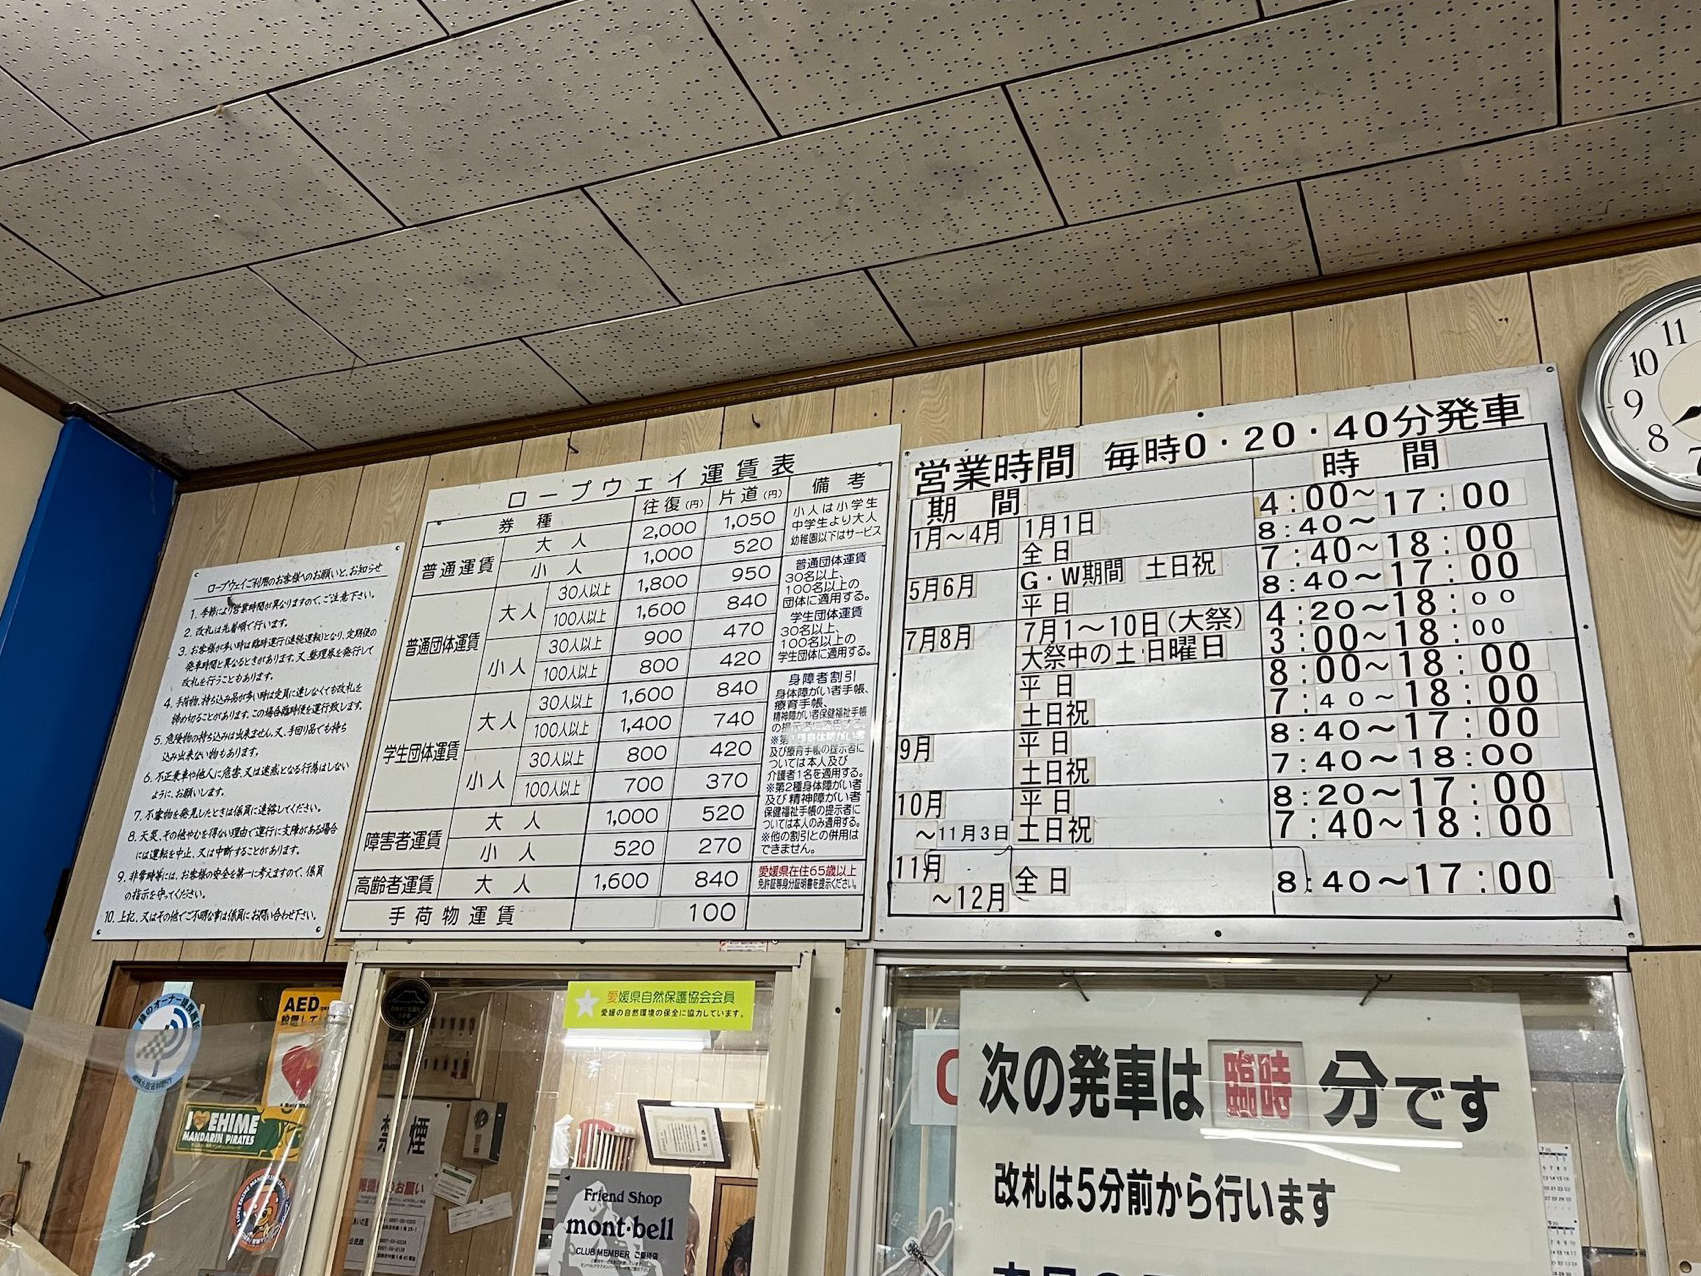 ロープウェイご利用のお客様へのお願いと、お知らせ
1. 季節により営業時間が異なりますので、ご注意下さい。
2. 改札は先着順で行います。
3. お客様が多い時は臨時運行(連続運転)となり、定期便の
発車時間と異なるときがあります。又、整理券を発行して
改札を行うこともあります。
4. 手荷物、持ち込み品が多い時は定員に達しなくても改札を
締め切ることがあります。この場合臨時便を運行致します。
5. 危険物の持ち込みは出来ません。又、手回り品でも持ち
込み出来ない物もあります。
6. 不正乗車や他人に危害、又は迷惑となる行為はしない
ように、お願いします。
7. 不審物を発見したときは係員に連絡してください。
8. 天災、その他やむを得ない理由で運行に支障がある場合
には運転を中止、又は中断することがあります。
9. 非常時等には、お客様の安全を第一に考えますので、係員
の指示を守ってください。
10. 上記、又はその他でご不明な事は係員にお問い合わせ下さい。
ロープウェイ運賃表
券種 往復(円) 片道(円) 備考
普通運賃 大人 2,000 1,050
小人 1,000 520
小人は小学生
中学生より大人
幼稚園以下はサービス
普通団体運賃 大人 30人以上 1,800 950
100人以上 1,600 840
小人 30人以上 900 470
100人以上 800 420
普通団体運賃
30名以上、
100名以上の
団体に適用する。
学生団体運賃
30名以上、
100名以上の
学生団体に適用する。
学生団体運賃 大人 30人以上 1,600 840
100人以上 1,400 740
小人 30人以上 800 420
100人以上 700 370
障害者運賃 大人 1,000 520
小人 520 270
身障者割引
身体障がい者手帳、
療育手帳、
精神障がい者保健福祉手帳
及び療育手帳の提示者に
ついては本人及び
介護者1名を適用する。
※第2種身体障がい者
及び精神障がい者
保健福祉手帳の提示者に
ついては本人のみ適用する。
※他の割引との併用は
できません。
高齢者運賃 大人 1,600 840
愛媛県在住65歳以上
免許証等身分証明書を提示ください。
手荷物運賃 100
営業時間 毎時0・20・40分発車
期間 時間
1月～4月 1月1日 4:00～17:00
全日 8:40～
5月6月 G・W期間 土日祝 7:40～18:00
平日 8:40～17:00
7月8月 7月1～10日(大祭) 4:20～18:00
大祭中の土・日曜日 3:00～18:00
平日 8:00～18:00
土日祝 7:40～18:00
9月 平日 8:40～17:00
土日祝 7:40～18:00
10月 平日 8:20～17:00
～11月3日 土日祝 7:40～18:00
11月
～12月 全日 8:40～17:00
11
10
9
8
7
AED
I ♥ EHIME
MANDARIN PIRATES
禁煙
愛媛県自然保護協会会員
愛媛の自然環境の保全に協力しています。
Friend Shop
mont-bell
CLUB MEMBER ご優待店
次の発車は 臨時 分です
改札は5分前から行います